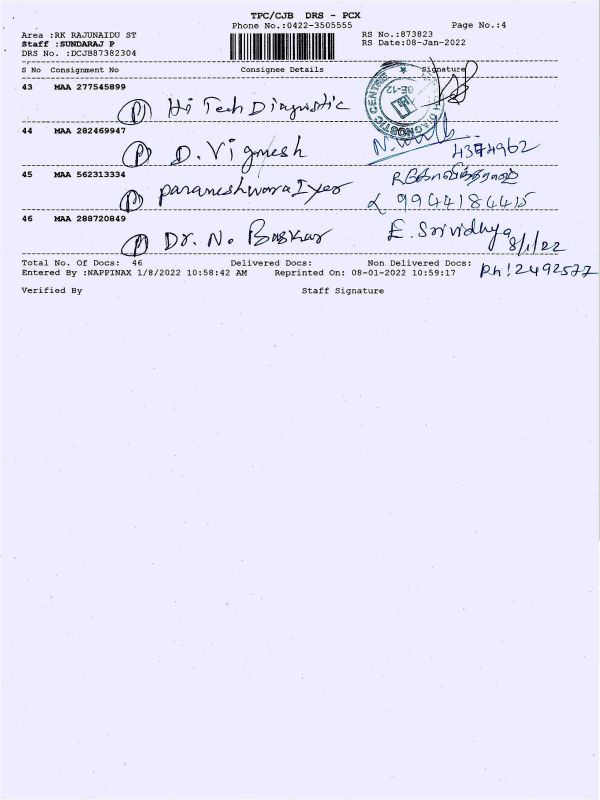 TPC/CJB DRS - PCX
Phone No.:0422-3505555 Page No.:4
Area :RK RAJUNAIDU ST RS No.:873823
Staff :SUNDARAJ P RS Date:08-Jan-2022
DRS No. :DCJB87382304
S No Consignment No Consignee Details Signature
43 MAA 277545899
(P) Hi Tech Diagnostic
44 MAA 282469947
(P) D. Vignesh 4374962
45 MAA 562313334
(P) parameshwara Iyer
9944184415
46 MAA 288720849
(P) Dr. N. Baskar E. Srividhya 8/1/22
Total No. Of Docs: 46 Delivered Docs: Non Delivered Docs: Ph: 2492577
Entered By :NAPPINAX 1/8/2022 10:58:42 AM Reprinted On: 08-01-2022 10:59:17
Verified By Staff Signature